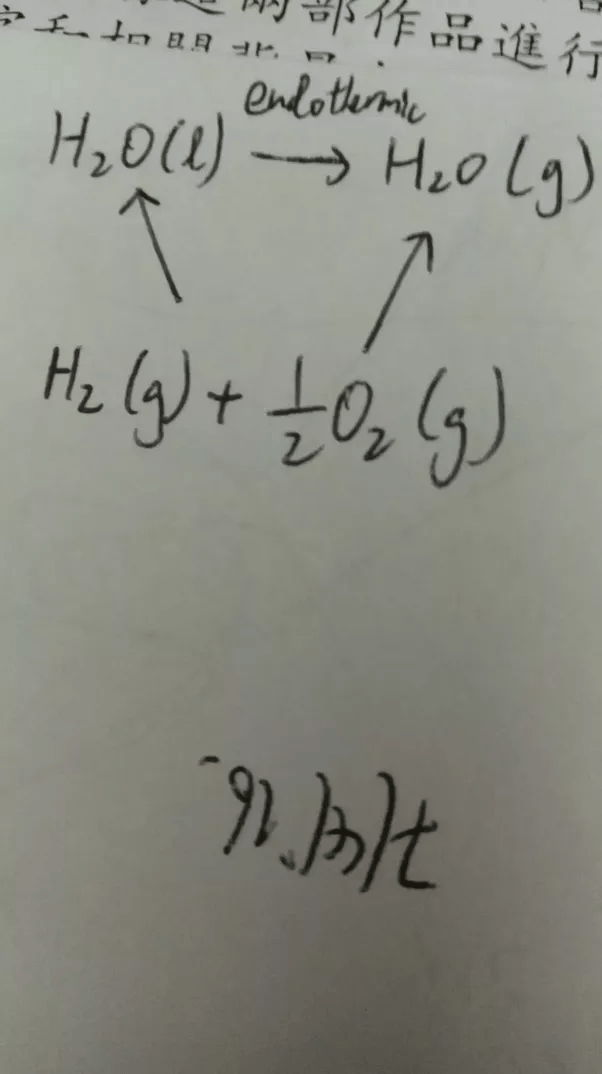 兩部作品進行
endothermic
H₂O(l) → H₂O(g)
↑ ↗
H₂(g) + 1/2 O₂(g)